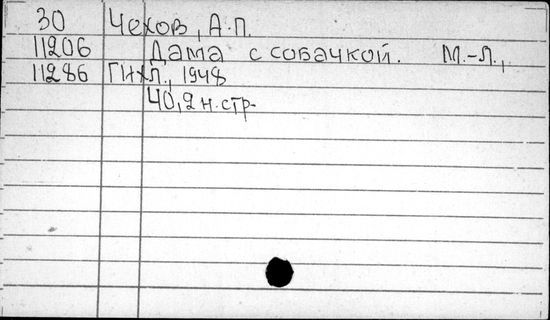 30 Чехов, А.П.
11206 Дама с собачкой. М.-Л.,
11286 ГИХЛ, 1948
40,2 н. стр.